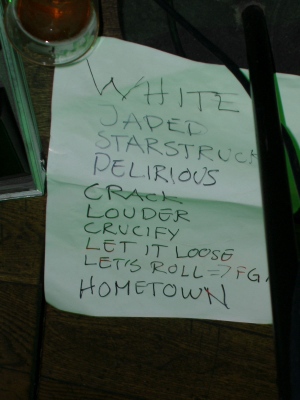 WHITE
JADED
STARSTRUCK
DELIRIOUS
CRACK
LOUDER
CRUCIFY
LET IT LOOSE
LET'S ROLL => FG.
HOMETOWN